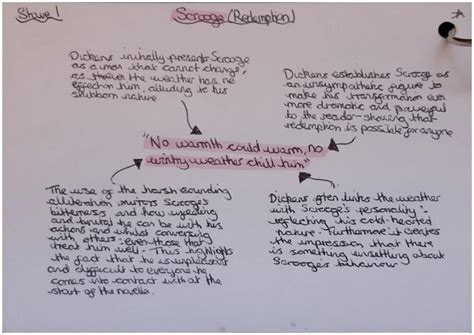 Stave 1
Scrooge (Redemption)
Dickens initially presents Scrooge
as a man that cannot change,
as the weather has no
effect on him, alluding to his
stubborn nature
Dickens establishes Scrooge as
an unsympathetic figure to
make his transformation even
more dramatic and powerful
to the reader - showing that
redemption is possible for anyone
"No warmth could warm, no
wintry weather chill him"
The use of the harsh sounding
alliteration mirrors Scrooge's
bitterness and how
and brutal he can be with his
actions and whilst conversing
with others - even those that
treat him well. This highlights
the fact that he is unpleasant
and difficult to everyone he
comes into contact with at the
start of the novella.
Dickens often links the weather
with Scrooge's personality -
reflecting his cold-hearted
nature. Furthermore it creates
the impression that there
is something unsettling about
Scrooge's behaviour